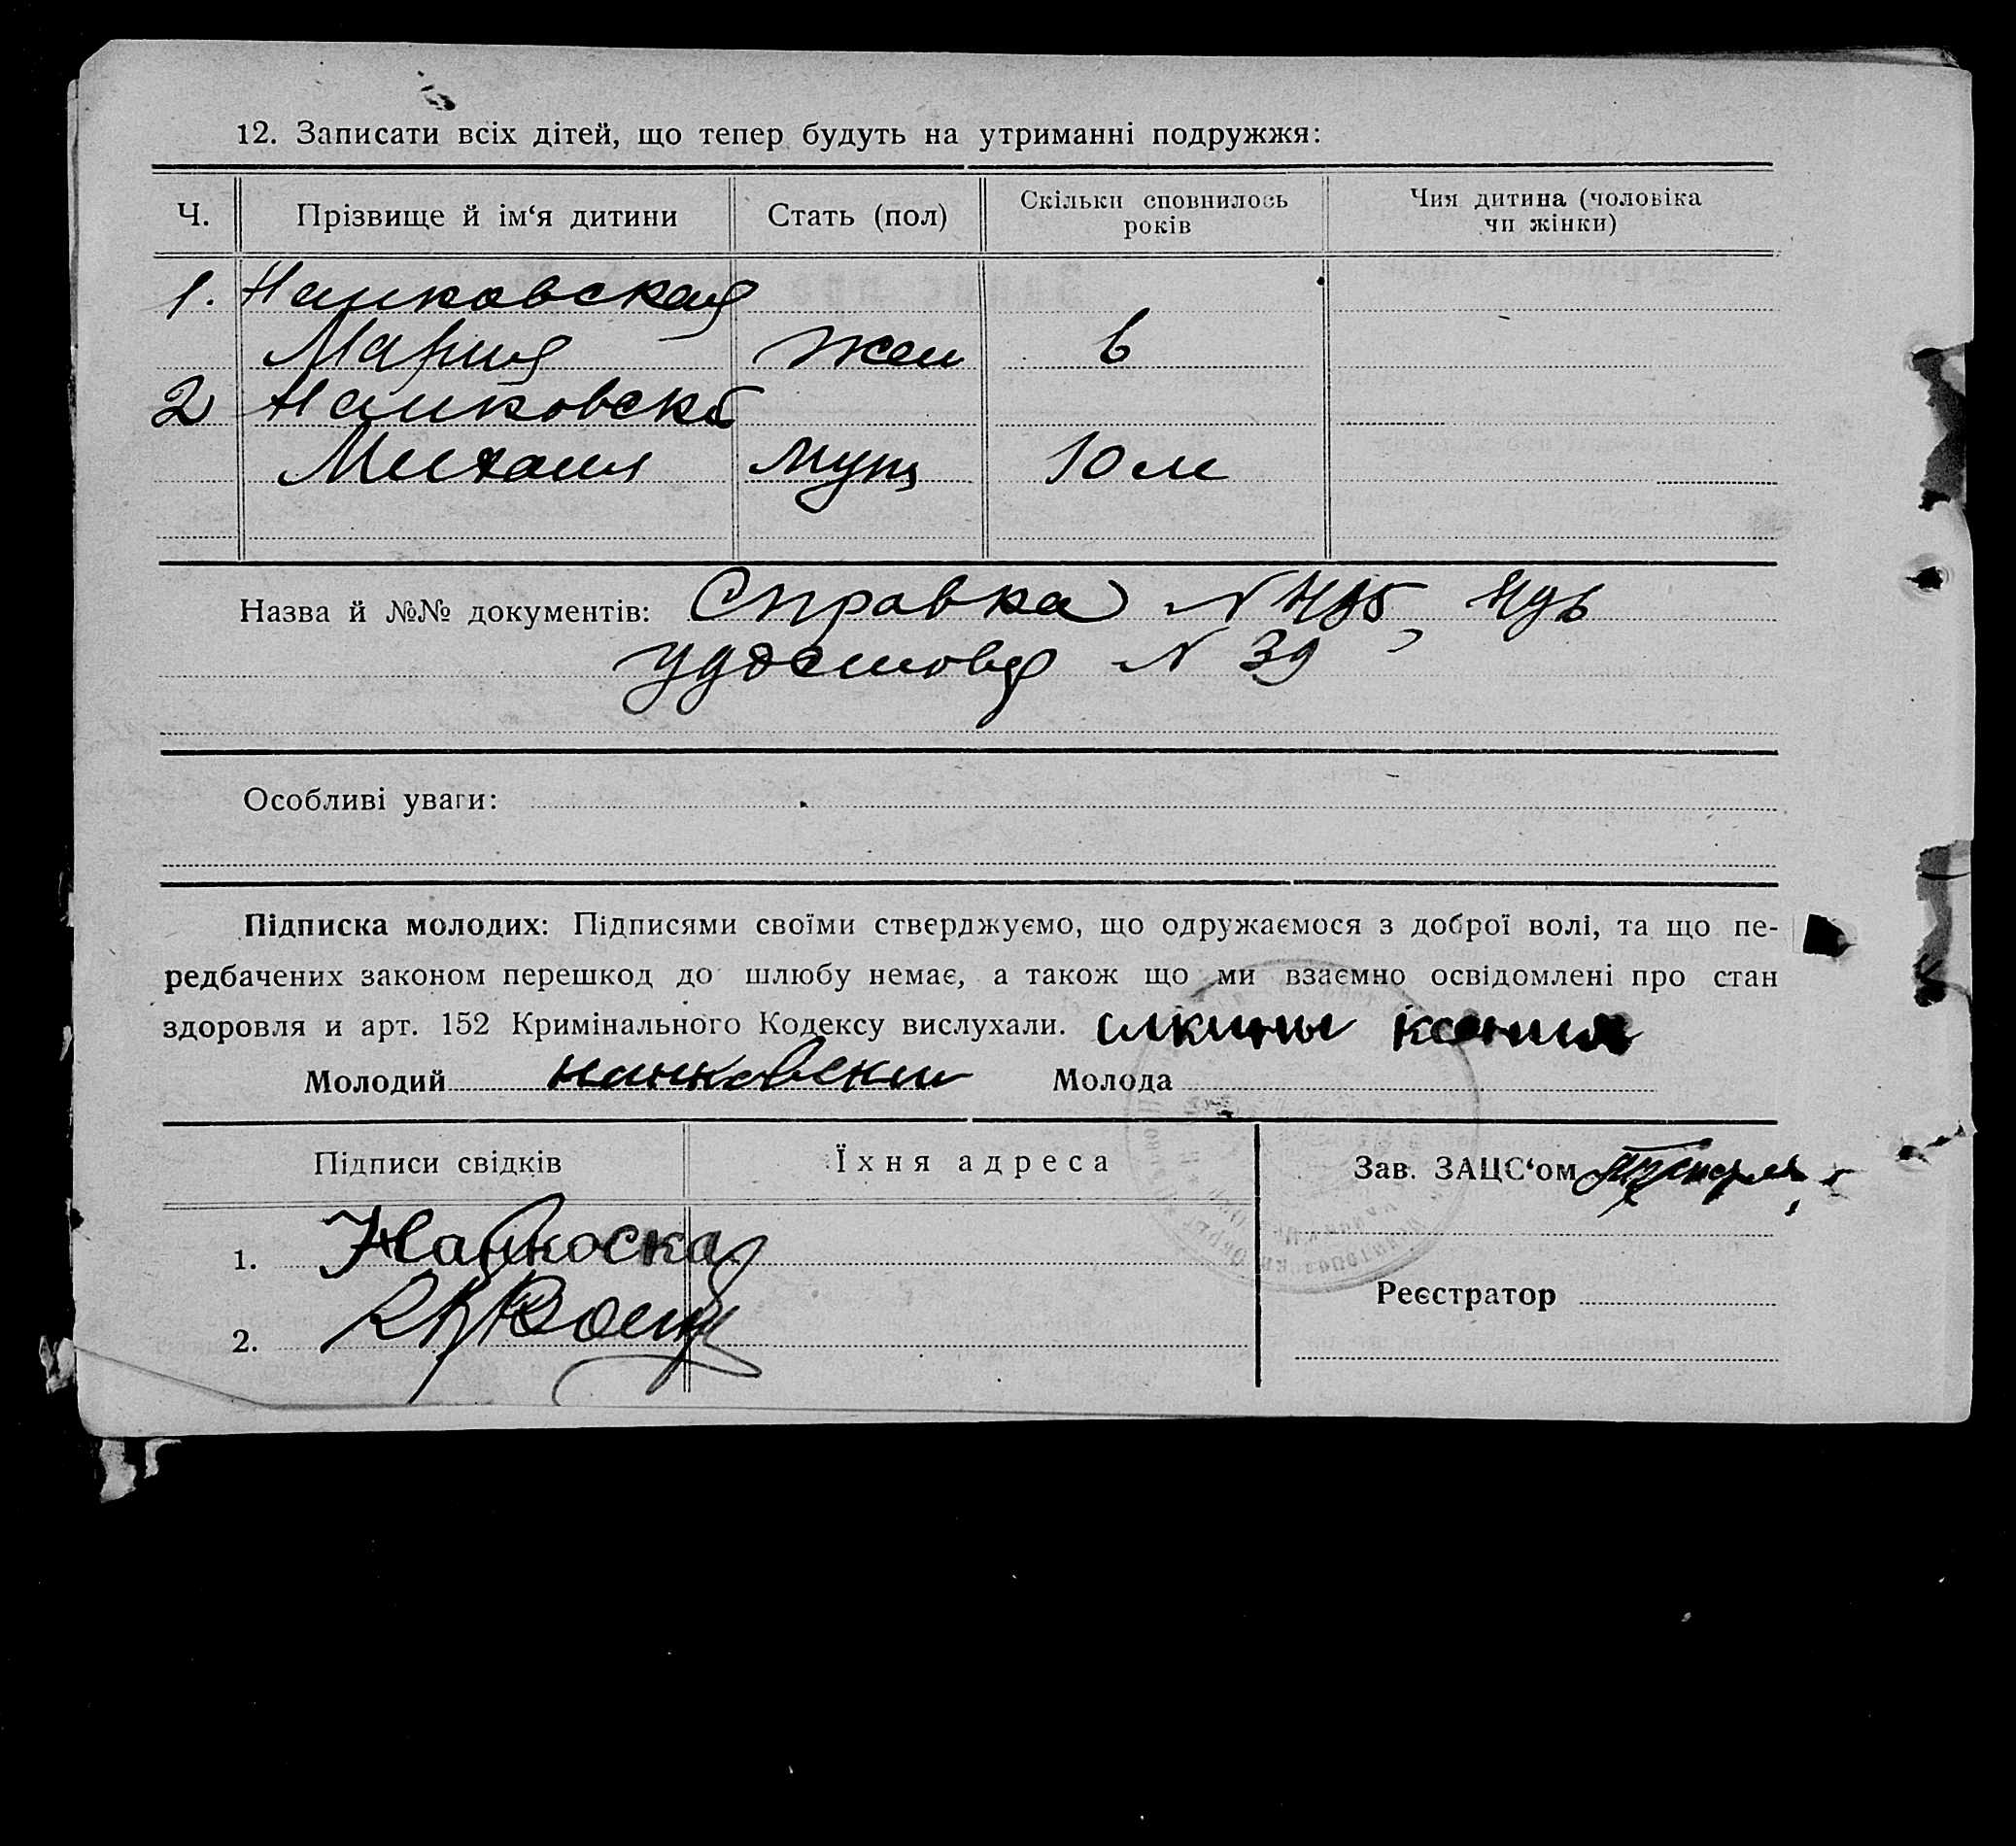 12. Записати всіх дітей, що тепер будуть на утриманні подружжя:
Ч. Прізвище й ім‘я дитини Стать (пол) Скільки сповнилось років Чия дитина (чоловіка чи жінки)
1. Нанковская
Мария жен 6
2 Нанковск
Михаил муж 10 м
Назва й №№ документів: Справка N
удостов N 39
Особливі уваги:
Підписка молодих: Підписями своїми стверджуємо, що одружаємося з доброї волі, та що пе-
редбачених законом перешкод до шлюбу немає, а також що ми взаємно освідомлені про стан
здоровля и арт. 152 Кримінального Кодексу вислухали.
Молодий нанковски Молода
Підписи свідків Їхня адреса Зав. ЗАЦС‘ом
1.
Реєстратор
2.